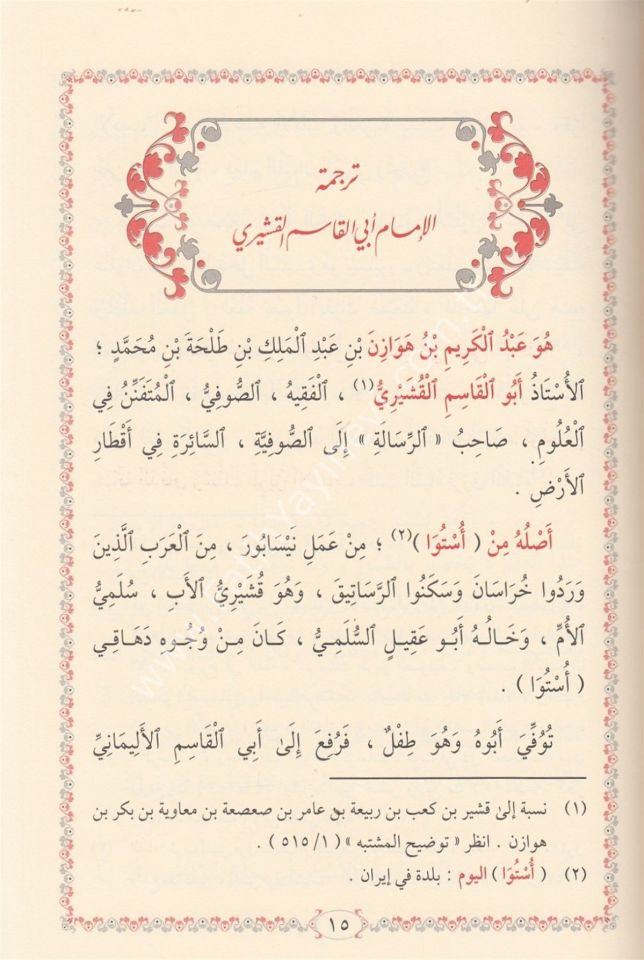 ترجمة
الإمام أبي القاسم القشيري
هُوَ عَبْدُ ٱلْكَرِيمِ بْنُ هَوَازِنَ بْنِ عَبْدِ ٱلْمَلِكِ بْنِ طَلْحَةَ بْنِ مُحَمَّدٍ ؛
ٱلأُسْتَاذُ أَبُو ٱلْقَاسِمِ ٱلْقُشَيْرِيُّ(١) ، ٱلْفَقِيهُ ، ٱلصُّوفِيُّ ، ٱلْمُتَفَنِّنُ فِي
ٱلْعُلُومِ ، صَاحِبُ « ٱلرِّسَالَةِ » إِلَى ٱلصُّوفِيَّةِ ، ٱلسَّائِرَةِ فِي أَقْطَارِ
ٱلأَرْضِ .
أَصْلُهُ مِنْ ( أُسْتُوَا )(٢) ؛ مِنْ عَمَلِ نَيْسَابُورَ ، مِنَ ٱلْعَرَبِ ٱلَّذِينَ
وَرَدُوا خُرَاسَانَ وَسَكَنُوا ٱلرَّسَاتِيقَ ، وَهُوَ قُشَيْرِيُّ ٱلأَبِ ، سُلَمِيُّ
ٱلأُمِّ ، وَخَالُهُ أَبُو عَقِيلٍ ٱلسُّلَمِيُّ ، كَانَ مِنْ وُجُوهِ دَهَاقِي
( أُسْتُوَا ) .
تُوُفِّيَ أَبُوهُ وَهُوَ طِفْلٌ ، فَرُفِعَ إِلَىٰ أَبِي ٱلْقَاسِمِ ٱلأَلِيمَانِيِّ
(١) نسبة إلىٰ قشير بن كعب بن ربيعة بن عامر بن صعصعة بن معاوية بن بكر بن
هوازن . انظر « توضيح المشتبه » ( ١/ ٥١٥ ) .
(٢) ( أُسْتُوَا ) اليوم : بلدة في إيران .
١٥